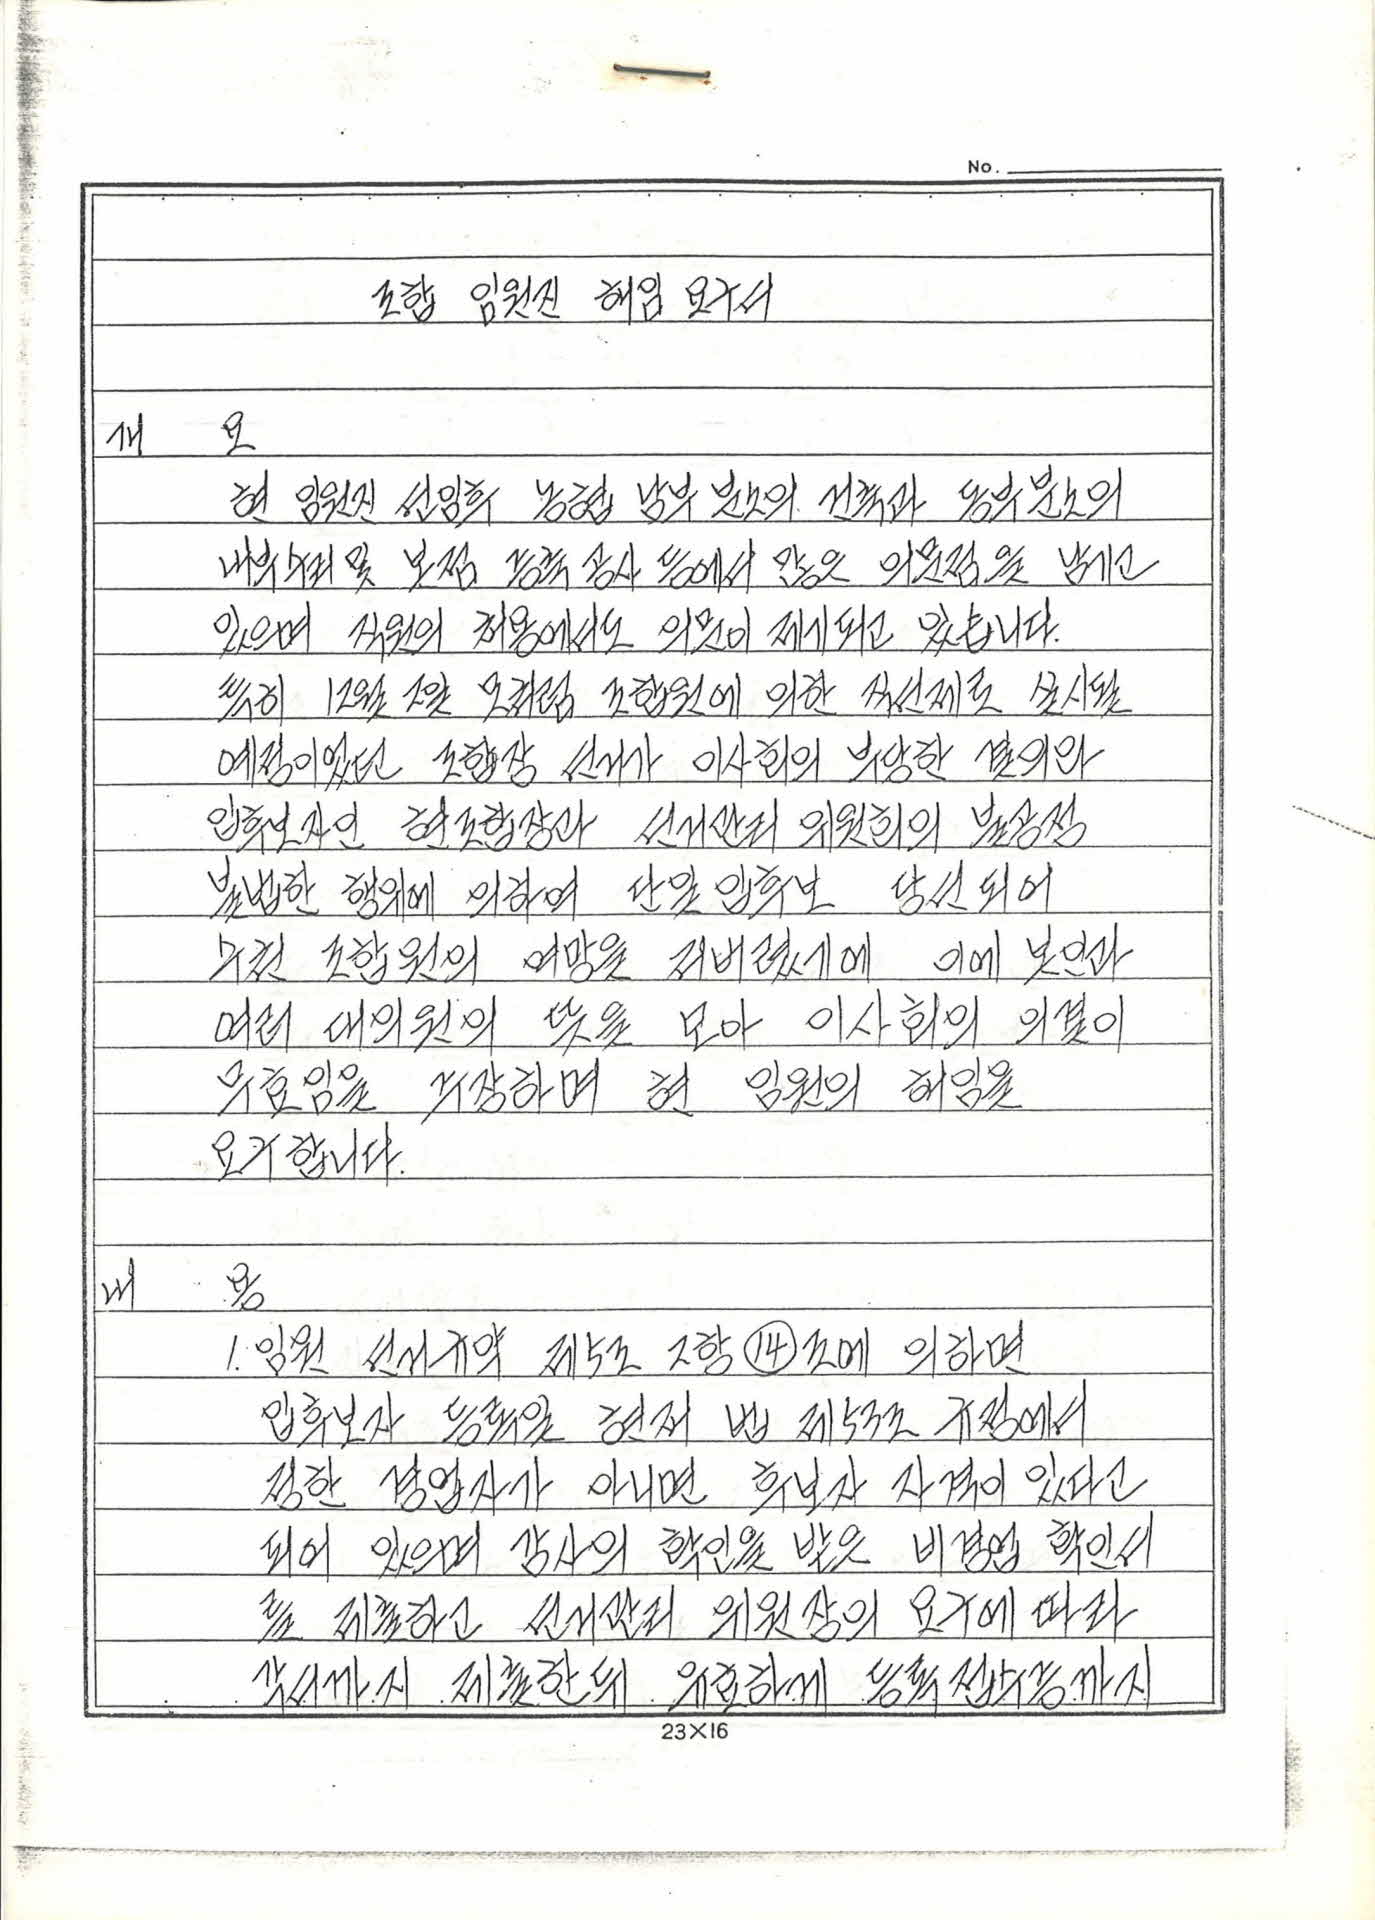 No.
조합 임원진 해임 요구서
개 요
현 임원진 선임후 농협 남부 분소의 건축과 동부분소의
내부수리 및 본점 증축 공사 등에서 많은 의문점을 남기고
있으며 직원의 채용에서도 의문이 제기되고 있습니다.
특히 12월 2일 모처럼 조합원에 의한 직선제로 실시될
예정이었던 조합장 선거가 이사회의 부당한 결의와
입후보자인 현조합장과 선거관리 위원회의 불공정
불법한 행위에 의하여 단일 입후보 당선되어
수천 조합원의 여망을 져버렸기에 이에 본인과
여러 대의원의 뜻을 모아 이사회의 의결이
무효임을 주장하며 현 임원의 해임을
요구합니다.
내 용
1. 임원 선거규약 제5조 2항 ⑭조에 의하면
입후보자 등록일 현재 법 제53조 규정에서
정한 경업자가 아니면 후보자 자격이 있다고
되어 있으며 감사의 확인을 받은 비경업 확인서
를 제출하고 선거관리 위원장의 요구에 따라
각서까지 제출한뒤 유효하게 등록 접수증까지
23×16